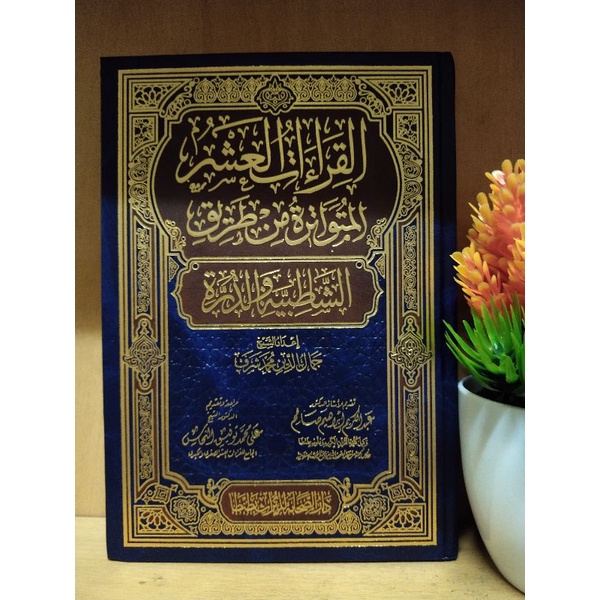 القراءات العشر
المتواترة من طريق
الشاطبية والدرة
إعداد الشيخ
جمال الدين محمد شرف
تقديم الأستاذ الدكتور
عبد الكريم إبراهيم صالح
مراجعة وتقديم
الدكتور الشيخ
علي محمد توفيق النحاس
دار الصحابة للتراث بطنطا